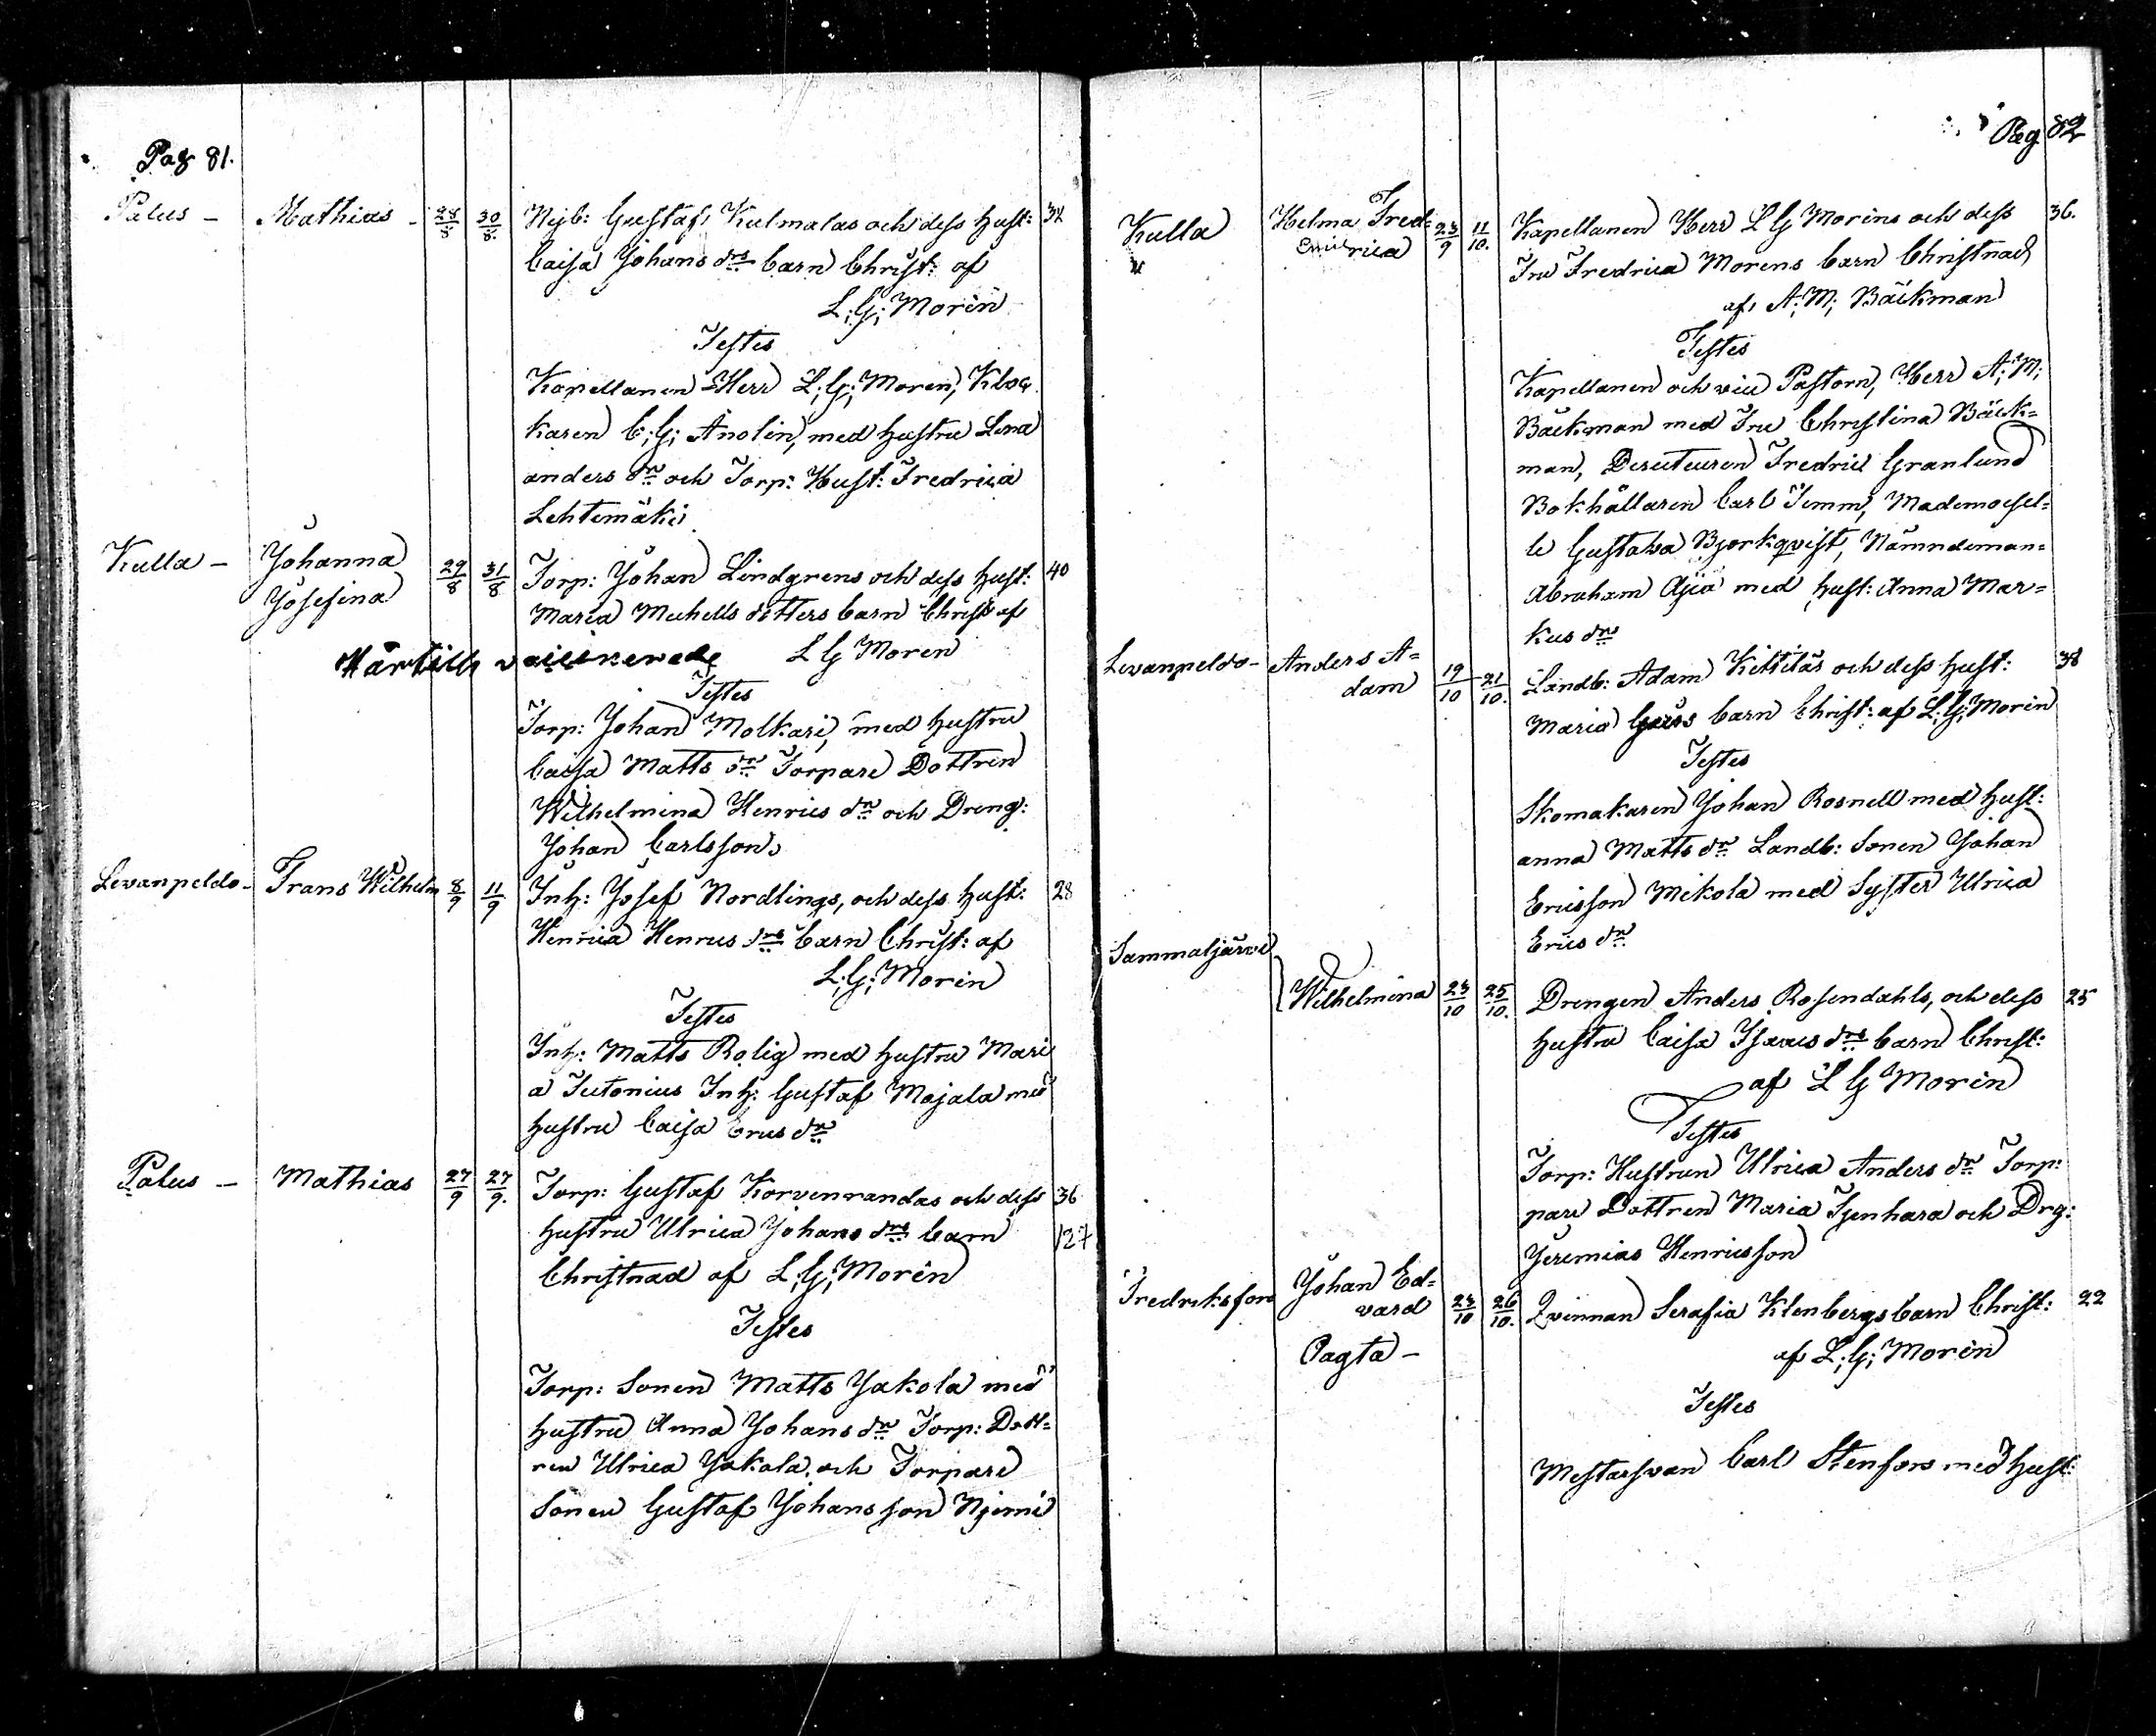 Pag 81.
Palus - Mathias - 28/8 30/8. Nyb: Gustaf Kulmalas och dess hust: 32
Caisa Johans drs barn Christ: af
L; G; Morén
Testes
Kapellanen Herr L; G; Morén, Kloc
karen C; G; Anolin, med hustru Lena
anders dr och Torp: Hust: Fredrica
Lehtemäki
Kulla - Johanna Josefina 29/8 31/8 Torp: Johan Lindgrens och dess hust: 40
Maria Michells dotters barn Christ af
L G Morén
Testes
Torp: Johan Molkari, med hustru
Caisa Matts dr Torpare Dottren
Wilhelmina Henrics dr och Dreng:
Johan Carlsson
Levanpeldo - Frans Wilhelm 8/9 11/9 Inh: Josef Nordlings, och dess hust: 28
Henrica Henrics drs barn Christ: af
L; G; Morén
Testes
Inh: Matts Rolig med hustru Mari
a Jutonius Inh: Gustaf Majala med
hustru Caisa Erics dr
Palus - Mathias 27/9 27/9. Torp: Gustaf Korvenrandas och dess 36
hustru Ulrica Johans drs barn 127
Christnad af L; G; Morén
Testes
Torp: Sonen Matts Jakola med
hustru Anna Johans dr Torp: Dott=
ren Ulrica Jakola, och Torpare
Sonen Gustaf Johansson Njemi
Pag 82
Kulla Helma Fred= rica 23/9 11/10. Kapellanen Herr L G Moréns och dess 36.
Fru Fredrica Moréns barn Christnad
af A; M; Bäckman
Testes
Kapellanen och vice Pastorn, Herr A; M;
Bäckman med Fru Christina Bäck=
man, Fredric Granlund
Bokhållaren Carl Temm, Mademoisel=
le Gustava Bjorkqvist, Nämndeman=
Abraham Äijä med hust: Anna Mar=
kus dr
Levanpeldo - Anders A= dam 19/10 21/10. Landb: Adam Kittilas och dess hust: 38
Maria barn Christ: af L; G; Morén
Testes
Skomakaren Johan Rosnell med hust:
anna Matts dr Landb: Sonen Johan
Ericsson Mikola med Syster Ulrica
Erics dr
Sammaljärvi Wilhelmina 23/10 25/10. Drengen Anders Rosendahls, och dess 25
hustru Caisa Isaacs drs barn Christ:
af L G Morén
Testes
Torp: Hustrun Ulrica Anders dr Torp:
pare Dottren Maria Isenhara och Drg:
Jeremias Henricsson
Fredriksfors Johan Ed= vard 23/10 26/10. Qvinnan Serafia Klenbergs barn Christ: 22
Oagta - af L; G; Morén
Testes
Carl Stenfors med hust: